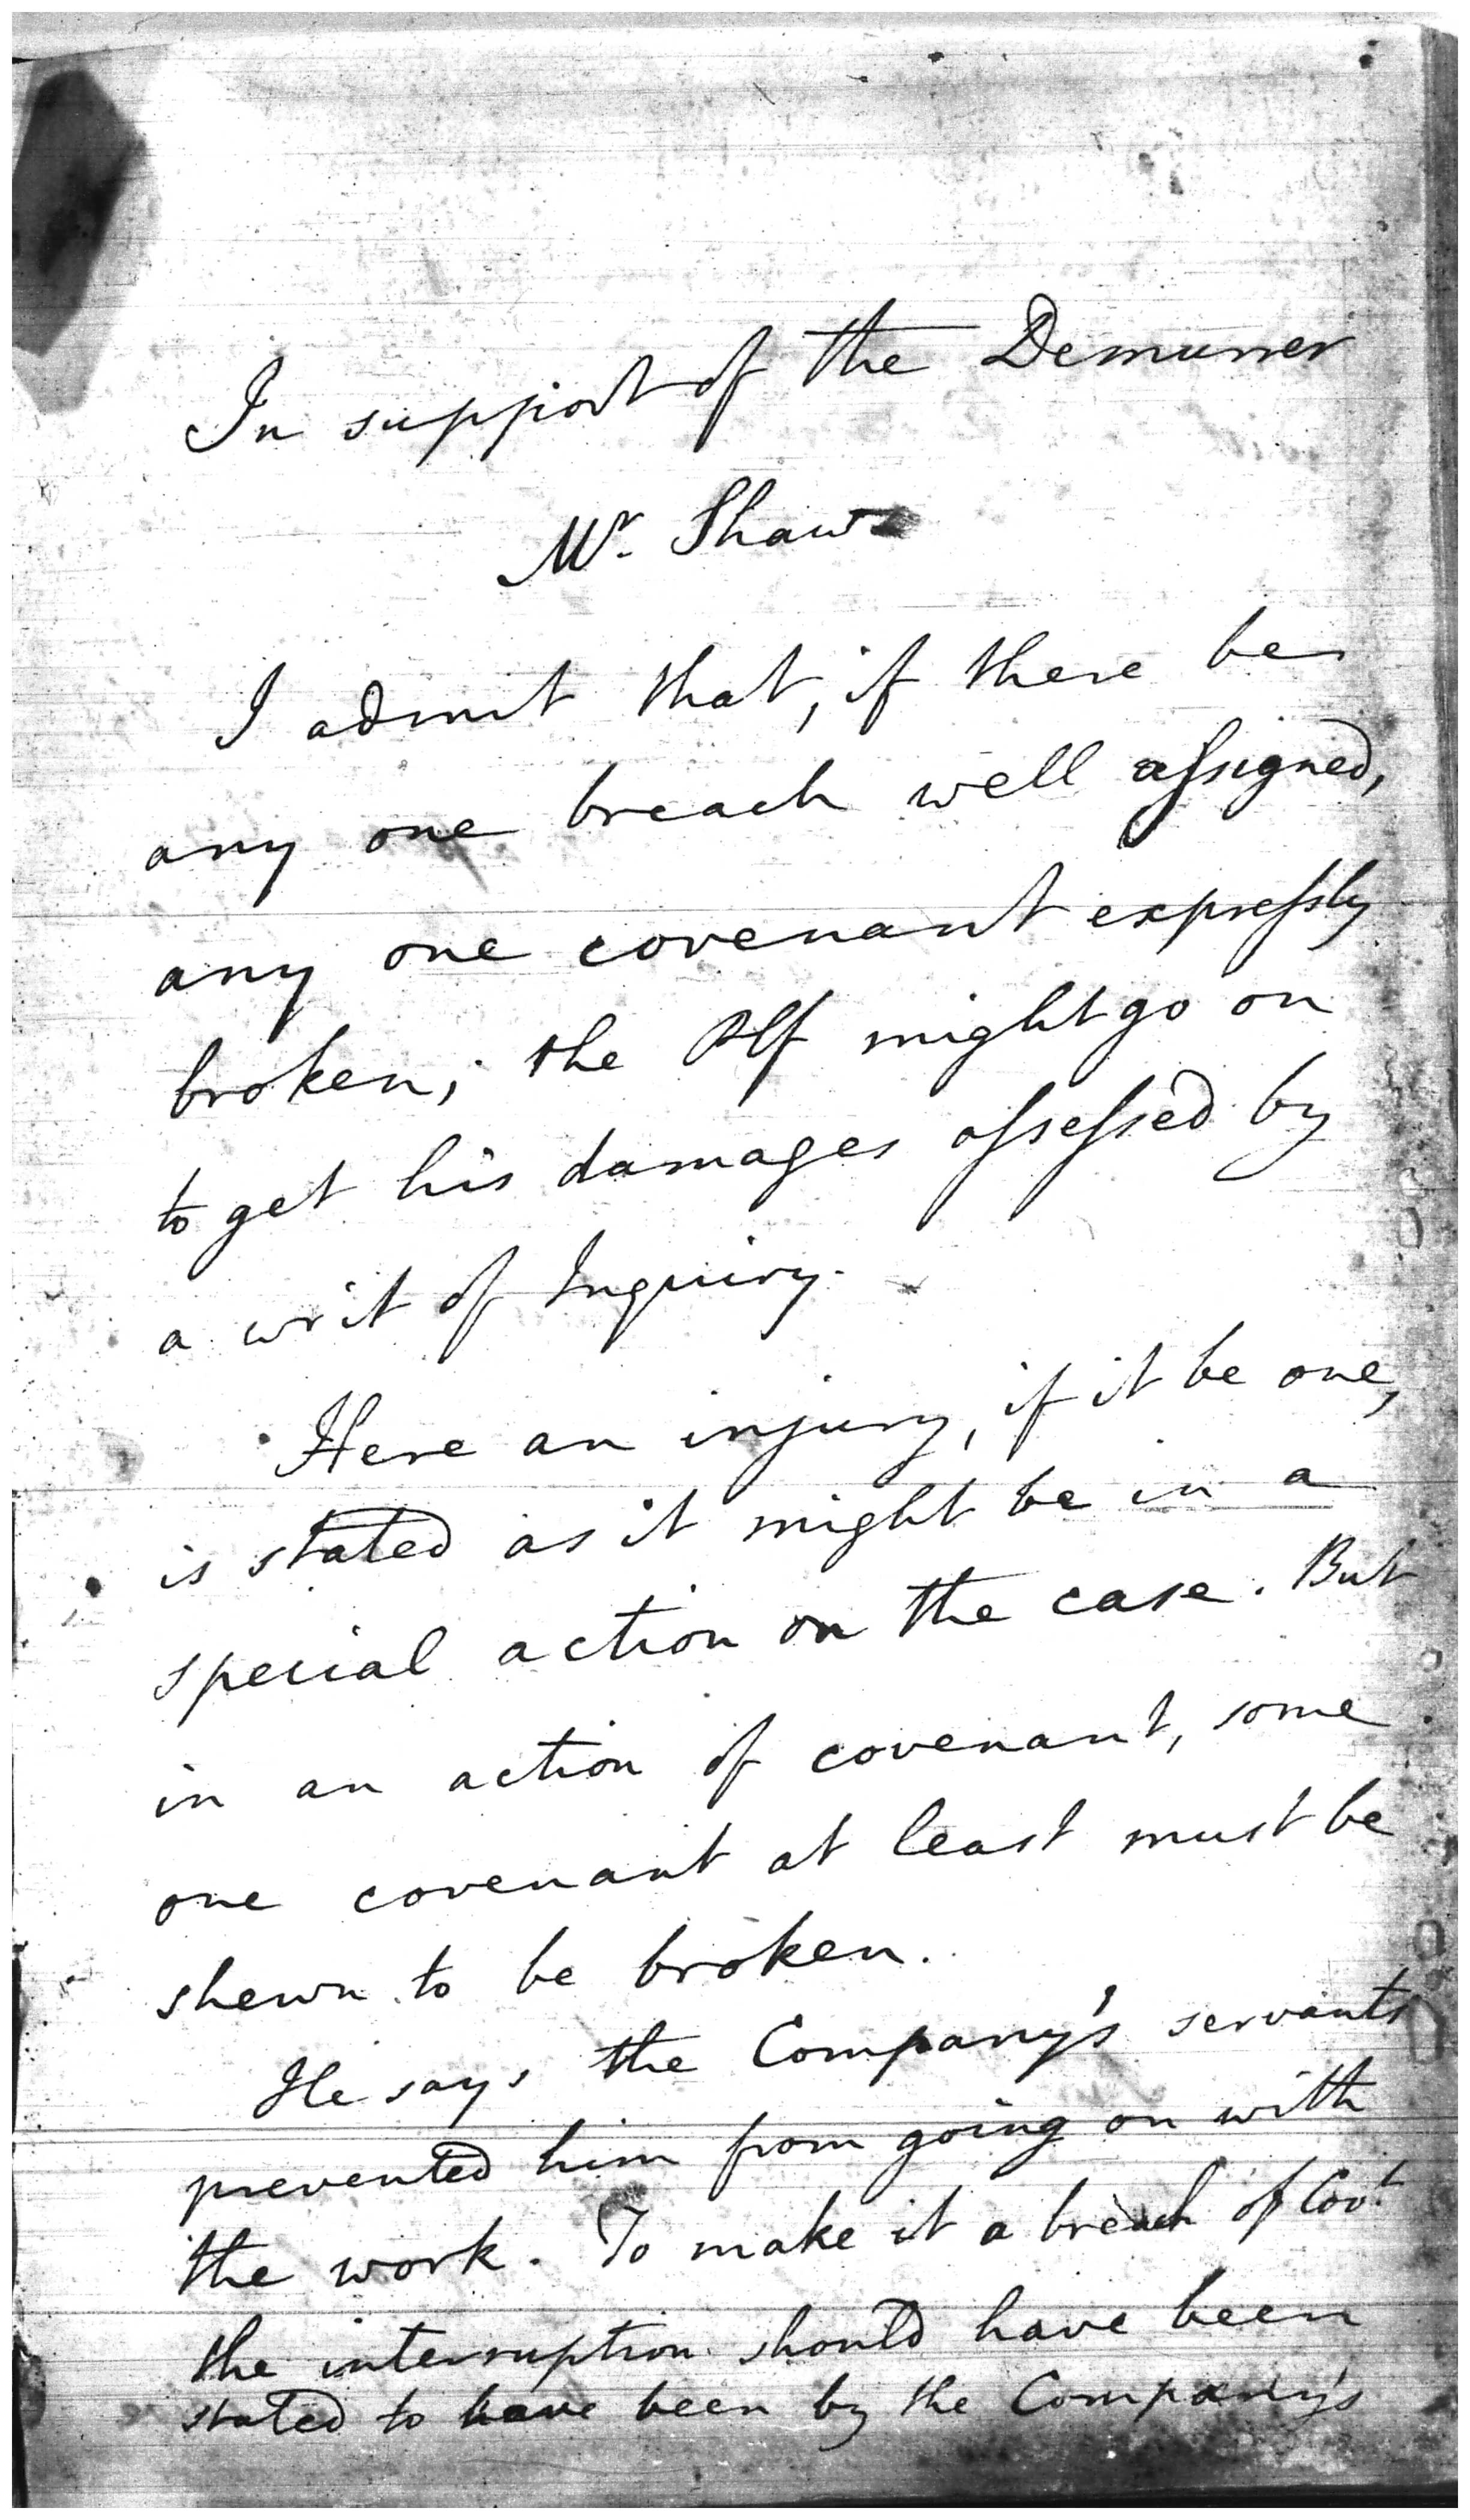 In support of the Demurrer
Mr. Shaw
I admit that, if there be
any one breach well assigned,
any one covenant expressly
broken; the Plf might go on
to get his damages assessed by
a writ of Inquiry.
Here an injury, if it be one,
is stated as it might be in a
special action on the case. But
in an action of covenant, some
one covenant at least must be
shewn to be broken.
He says the Company's servants
prevented him from going on with
the work. To make it a breach of Covt.
the interruption should have been
stated to have been by the Company's